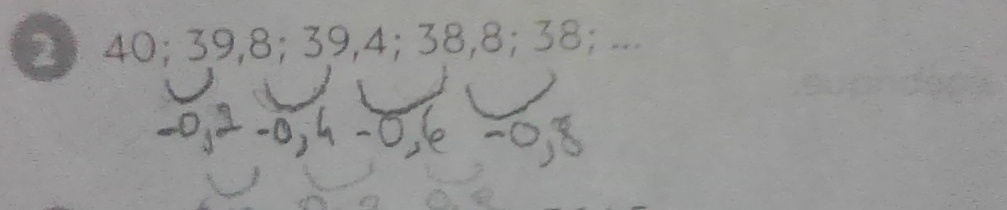 2 40; 39,8; 39,4; 38,8; 38; ...
-0,2 -0,4 -0,6 -0,8